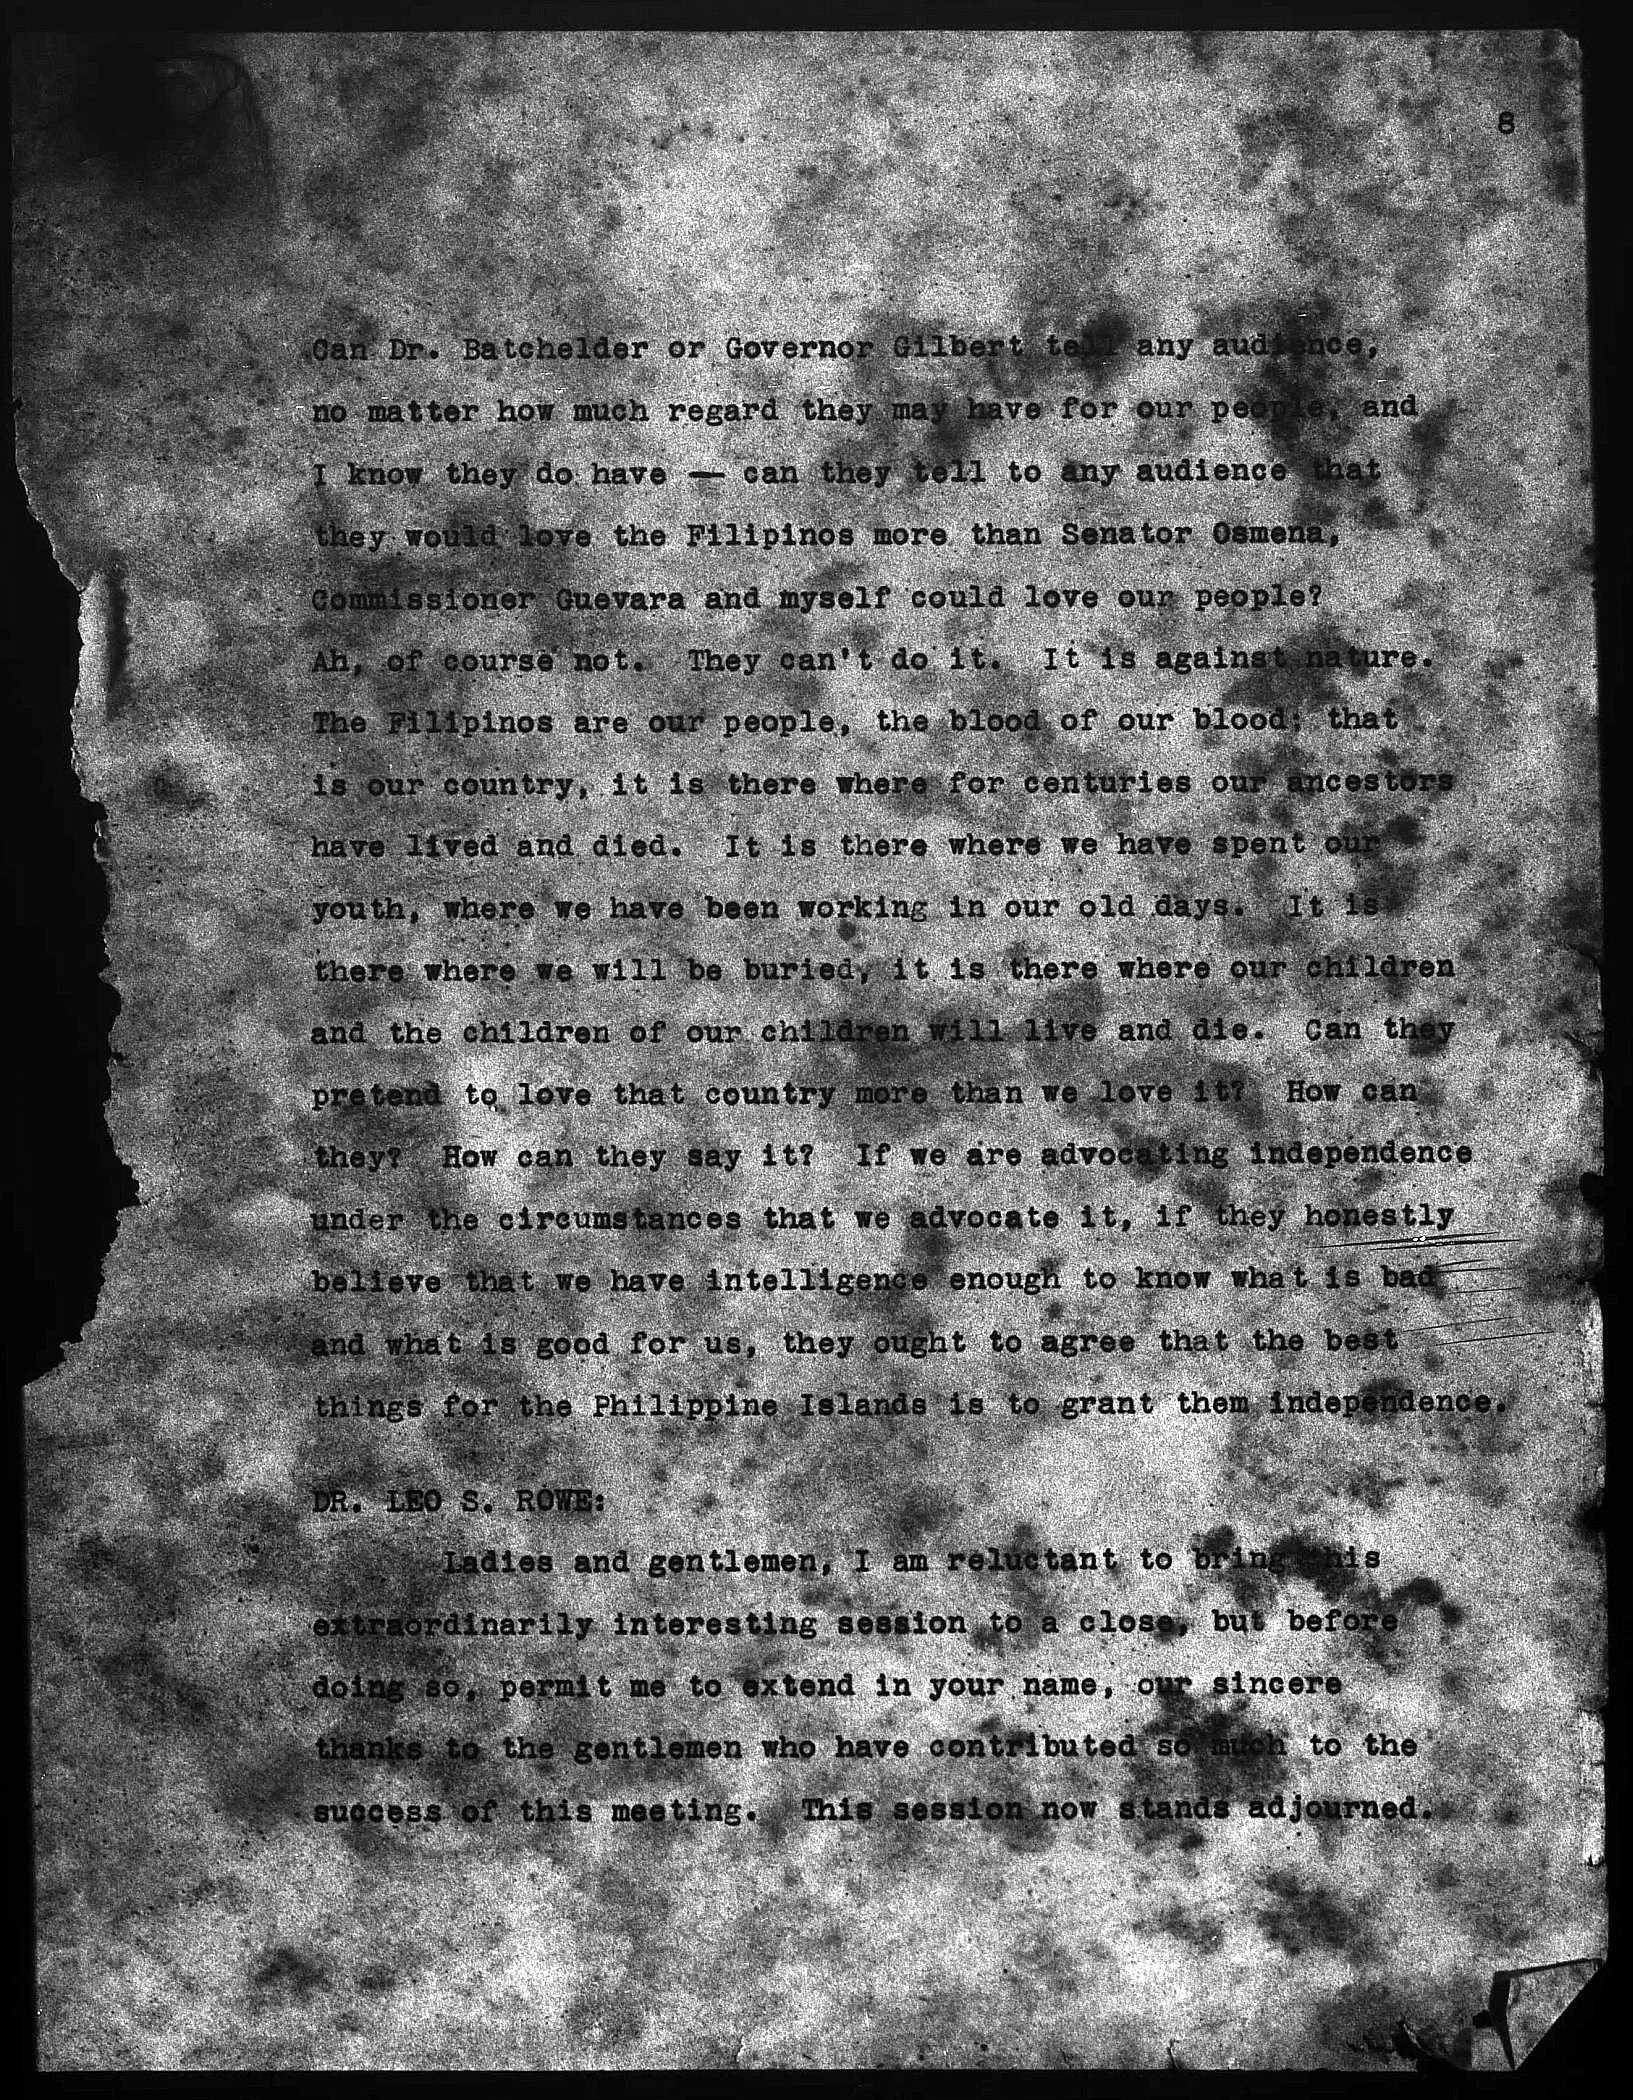 8
Can Dr. Batchelder or Governor Gilbert tell any audience,
no matter how much regard they may have for our people, and
I know they do have — can they tell to any audience that
they would love the Filipinos more than Senator Osmena,
Commissioner Guevara and myself could love our people?
Ah, of course not. They can't do it. It is against nature.
The Filipinos are our people, the blood of our blood; that
is our country, it is there where for centuries our ancestors
have lived and died. It is there where we have spent our
youth, where we have been working in our old days. It is
there where we will be buried, it is there where our children
and the children of our children will live and die. Can they
pretend to love that country more than we love it? How can
they? How can they say it? If we are advocating independence
under the circumstances that we advocate it, if they honestly
believe that we have intelligence enough to know what is bad
and what is good for us, they ought to agree that the best
things for the Philippine Islands is to grant them independence.
DR. LEO S. ROWE:
Ladies and gentlemen, I am reluctant to bring this
extraordinarily interesting session to a close, but before
doing so, permit me to extend in your name, our sincere
thanks to the gentlemen who have contributed so much to the
success of this meeting. This session now stands adjourned.